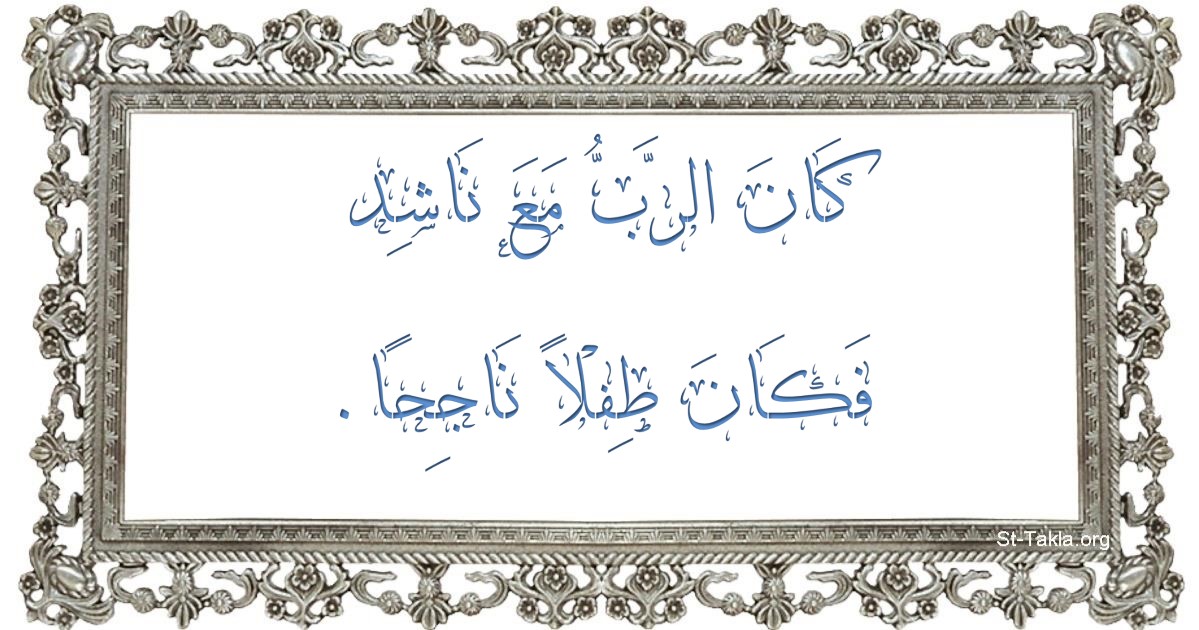 كَانَ الرَّبُّ مَعَ نَاشِدِ
فَكَانَ طِفْلاً نَاجِحًا .
St-Takla.org